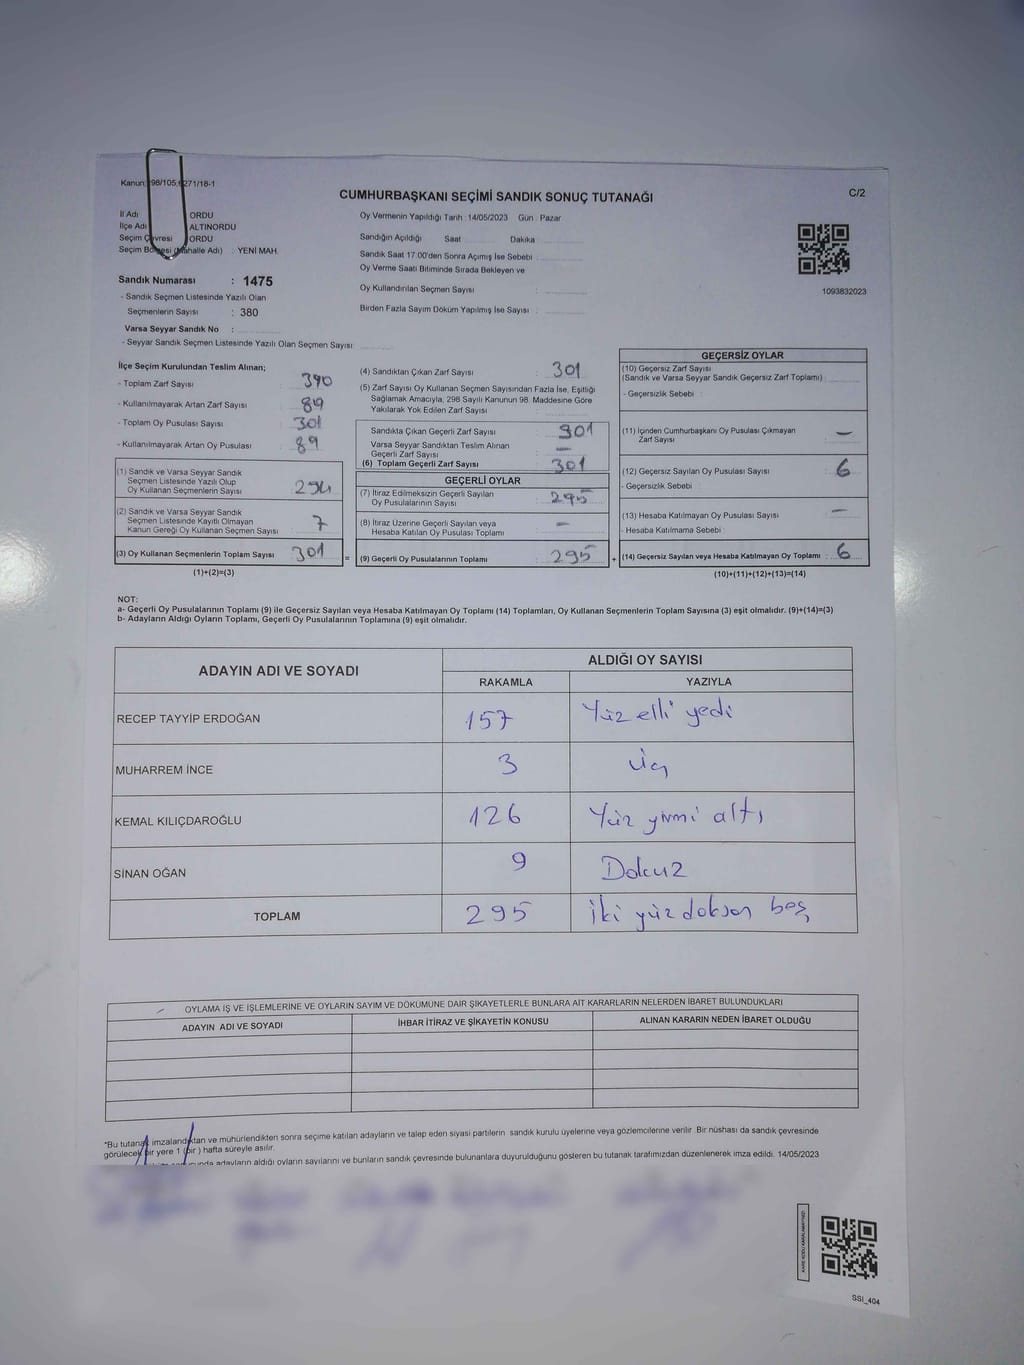 Kanun: 98/105, 271/18-1
CUMHURBAŞKANI SEÇİMİ SANDIK SONUÇ TUTANAĞI
C/2
İl Adı ORDU
İlçe Adı ALTINORDU
Seçim Çevresi ORDU
Seçim Bölgesi (Mahalle Adı) : YENİ MAH.
Oy Vermenin Yapıldığı Tarih : 14/05/2023 Gün : Pazar
Sandığın Açıldığı Saat Dakika
Sandık Saat 17:00'den Sonra Açımış İse Sebebi
Oy Verme Saati Bitiminde Sırada Bekleyen ve
Oy Kullandırılan Seçmen Sayısı :
Birden Fazla Sayım Döküm Yapılmış İse Sayısı :
1093832023
Sandık Numarası : 1475
- Sandık Seçmen Listesinde Yazılı Olan
Seçmenlerin Sayısı : 380
Varsa Seyyar Sandık No :
- Seyyar Sandık Seçmen Listesinde Yazılı Olan Seçmen Sayısı:
İlçe Seçim Kurulundan Teslim Alınan;
- Toplam Zarf Sayısı 390
- Kullanılmayarak Artan Zarf Sayısı 89
- Toplam Oy Pusulası Sayısı 301
- Kullanılmayarak Artan Oy Pusulası 89
(1) Sandık ve Varsa Seyyar Sandık
Seçmen Listesinde Yazılı Olup
Oy Kullanan Seçmenlerin Sayısı 294
(2) Sandık ve Varsa Seyyar Sandık
Seçmen Listesinde Kayıtlı Olmayan
Kanun Gereği Oy Kullanan Seçmen Sayısı 7
(3) Oy Kullanan Seçmenlerin Toplam Sayısı 301
(1)+(2)=(3)
(4) Sandıktan Çıkan Zarf Sayısı 301
(5) Zarf Sayısı Oy Kullanan Seçmen Sayısından Fazla İse, Eşitliği
Sağlamak Amacıyla, 298 Sayılı Kanunun 98. Maddesine Göre
Yakılarak Yok Edilen Zarf Sayısı :
Sandıkta Çıkan Geçerli Zarf Sayısı 301
Varsa Seyyar Sandıktan Teslim Alınan
Geçerli Zarf Sayısı —
(6) Toplam Geçerli Zarf Sayısı 301
GEÇERLİ OYLAR
(7) İtiraz Edilmeksizin Geçerli Sayılan
Oy Pusulalarının Sayısı : 295
(8) İtiraz Üzerine Geçerli Sayılan veya
Hesaba Katılan Oy Pusulaları Toplamı —
= (9) Geçerli Oy Pusulalarının Toplamı 295
GEÇERSİZ OYLAR
(10) Geçersiz Zarf Sayısı
(Sandık ve Varsa Seyyar Sandık Geçersiz Zarf Toplamı) :
- Geçersizlik Sebebi :
(11) İçinden Cumhurbaşkanı Oy Pusulası Çıkmayan
Zarf Sayısı —
(12) Geçersiz Sayılan Oy Pusulası Sayısı : 6
- Geçersizlik Sebebi
(13) Hesaba Katılmayan Oy Pusulası Sayısı : —
- Hesaba Katılmama Sebebi :
+ (14) Geçersiz Sayılan veya Hesaba Katılmayan Oy Toplamı : 6
(10)+(11)+(12)+(13)=(14)
NOT:
a- Geçerli Oy Pusulalarının Toplamı (9) ile Geçersiz Sayılan veya Hesaba Katılmayan Oy Toplamı (14) Toplamları, Oy Kullanan Seçmenlerin Toplam Sayısına (3) eşit olmalıdır. (9)+(14)=(3)
b- Adayların Aldığı Oyların Toplamı, Geçerli Oy Pusulalarının Toplamına (9) eşit olmalıdır.
ADAYIN ADI VE SOYADI ALDIĞI OY SAYISI
RAKAMLA YAZIYLA
RECEP TAYYİP ERDOĞAN 157 Yüz elli yedi
MUHARREM İNCE 3 üç
KEMAL KILIÇDAROĞLU 126 Yüz yirmi altı
SİNAN OĞAN 9 Dokuz
TOPLAM 295 iki yüz doksan beş
OYLAMA İŞ VE İŞLEMLERİNE VE OYLARIN SAYIM VE DÖKÜMÜNE DAİR ŞİKAYETLERLE BUNLARA AİT KARARLARIN NELERDEN İBARET BULUNDUKLARI
ADAYIN ADI VE SOYADI İHBAR İTİRAZ VE ŞİKAYETİN KONUSU ALINAN KARARIN NEDEN İBARET OLDUĞU
*Bu tutanak imzalandıktan ve mühürlendikten sonra seçime katılan adayların ve talep eden siyasi partilerin sandık kurulu üyelerine veya gözlemcilerine verilir. Bir nüshası da sandık çevresinde
görülecek bir yere 1 (bir) hafta süreyle asılır.
adayların aldığı oyların sayılarını ve bunların sandık çevresinde bulunanlara duyurulduğunu gösteren bu tutanak tarafımızdan düzenlenerek imza edildi. 14/05/2023
SSI_404